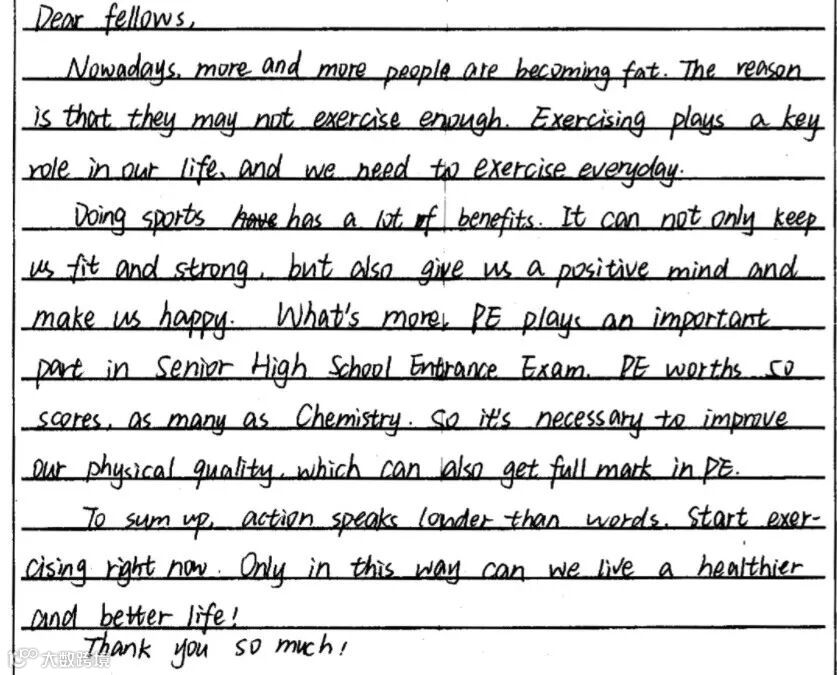 Dear fellows,
Nowadays, more and more people are becoming fat. The reason
is that they may not exercise enough. Exercising plays a key
role in our life, and we need to exercise everyday.
Doing sports have has a lot of benefits. It can not only keep
us fit and strong, but also give us a positive mind and
make us happy. What's more, PE plays an important
part in Senior High School Entrance Exam. PE worths 50
scores, as many as Chemistry. So it's necessary to improve
our physical quality, which can also get full mark in PE.
To sum up, action speaks louder than words. Start exer-
cising right now. Only in this way can we live a healthier
and better life!
Thank you so much!
大数跨境